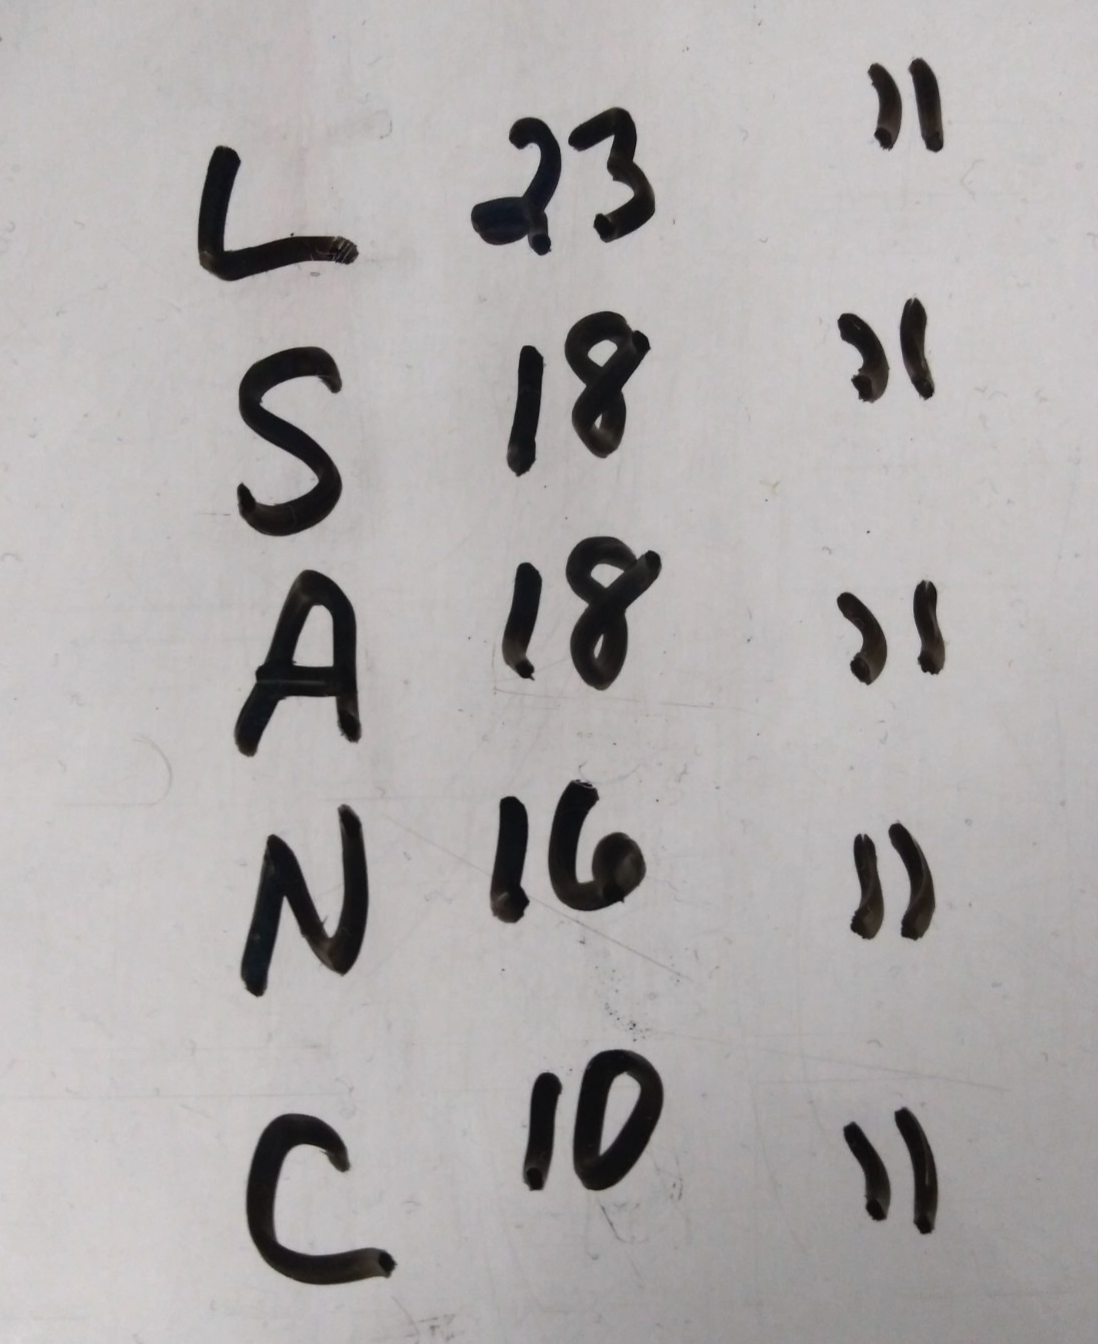 L 23 "
S 18 "
A 18 "
N 16 "
C 10 "